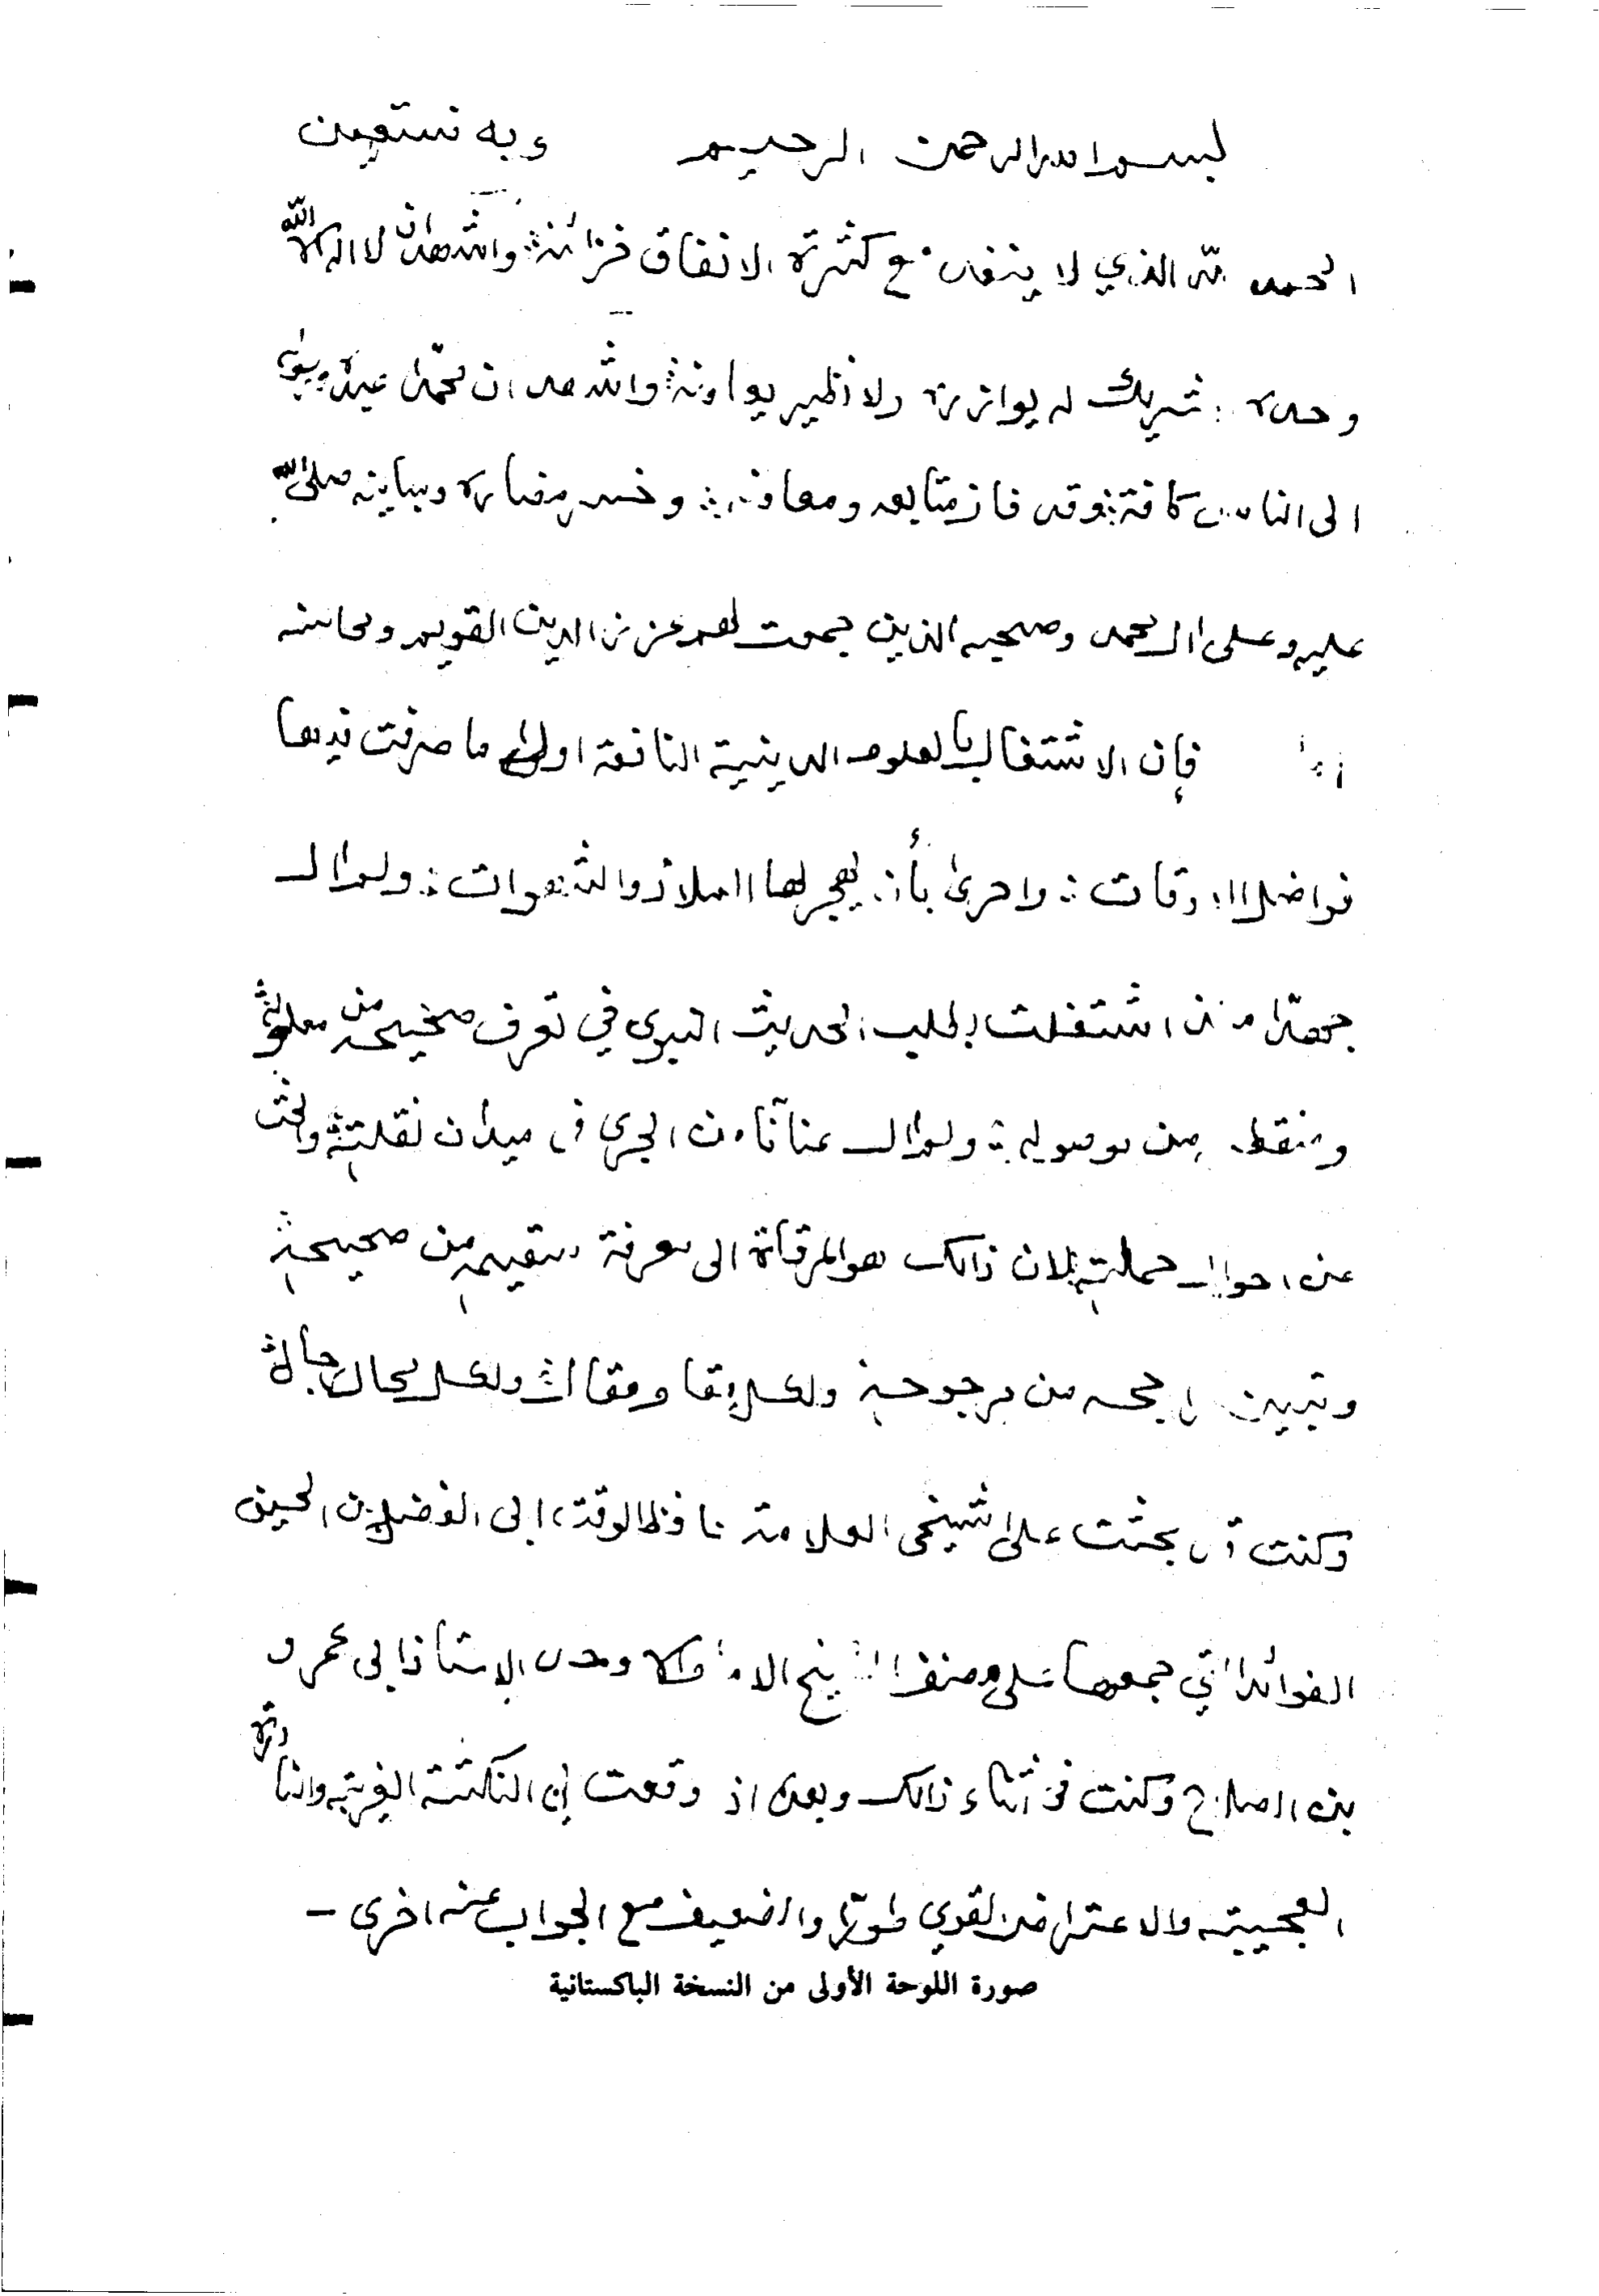 بسم الله الرحمن الرحيم وبه نستعين
الحمد لله الذي لا ينفد مع كثرة الانفاق خزائنه واشهد ان لا اله الا الله
وحده شريك له يوازره ولا نظير يعاونه واشهد ان محمدا عبده
الى الناس كافة وقد فاز متابعه ومعاونه وخسر مضاره ومباينه صلى الله
عليه وعلى ال محمد وصحبه الذين جمعت لهم عزز الدين القويم ومحاسنه
فإن الاشتغال بالعلوم الدينية النافعة اولى ما صرفت فيها
فواضل الاوقات واحرى بأن يهجر لها الملاذ والشهوات ولم ال
جهدا منذ اشتغلت بطلب الحديث النبوي في تعرف صحيحه من معلوله
ومنقطعه من موصوله ولم ال عنانا من الجري في ميدان نقلته والبحث
عن احوال حملته لان ذالك هو المرقاة الى معرفة سقيمه من صحيحه
وتبيين راجحه من مرجوحه ولكل مقام مقال ولكل مجال رجال
وكنت قد بحثت على شيخي العلامة حافظ الوقت ابي الفضل بن الحسين
الفوائد التي جمعها على مصنف الشيخ الامام الاوحد الاستاذ ابي عمرو
بن الصلاح وكنت في أثناء ذالك وبعده اذ وقعت لي النكتة الغريبه والنادره
العجيبه والاعتراض القوي طورا والضعيف مع الجواب عنه اخرى -
صورة اللوحة الأولى من النسخة الباكستانية